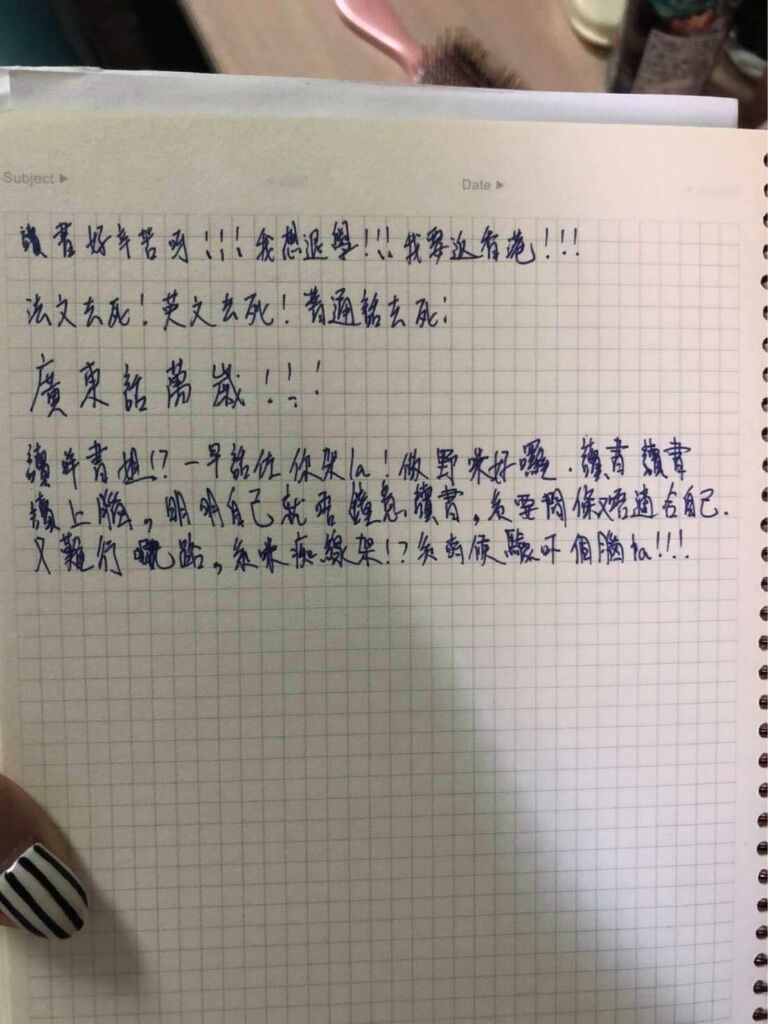 Subject ▶
Date ▶
讀書好辛苦呀!!!我想退學!!!我要返香港!!!
法文去死!英文去死!普通話去死!
廣東話萬歲!!!
讀咩書姐!?一早話佐你架la!做野咪好囉.讀書讀書
讀上腦,明明自己就唔鐘意讀書,系要間條又唔適合自己.
又難行嘅路,系咪痴線架!?系時候驗吓個腦la!!!